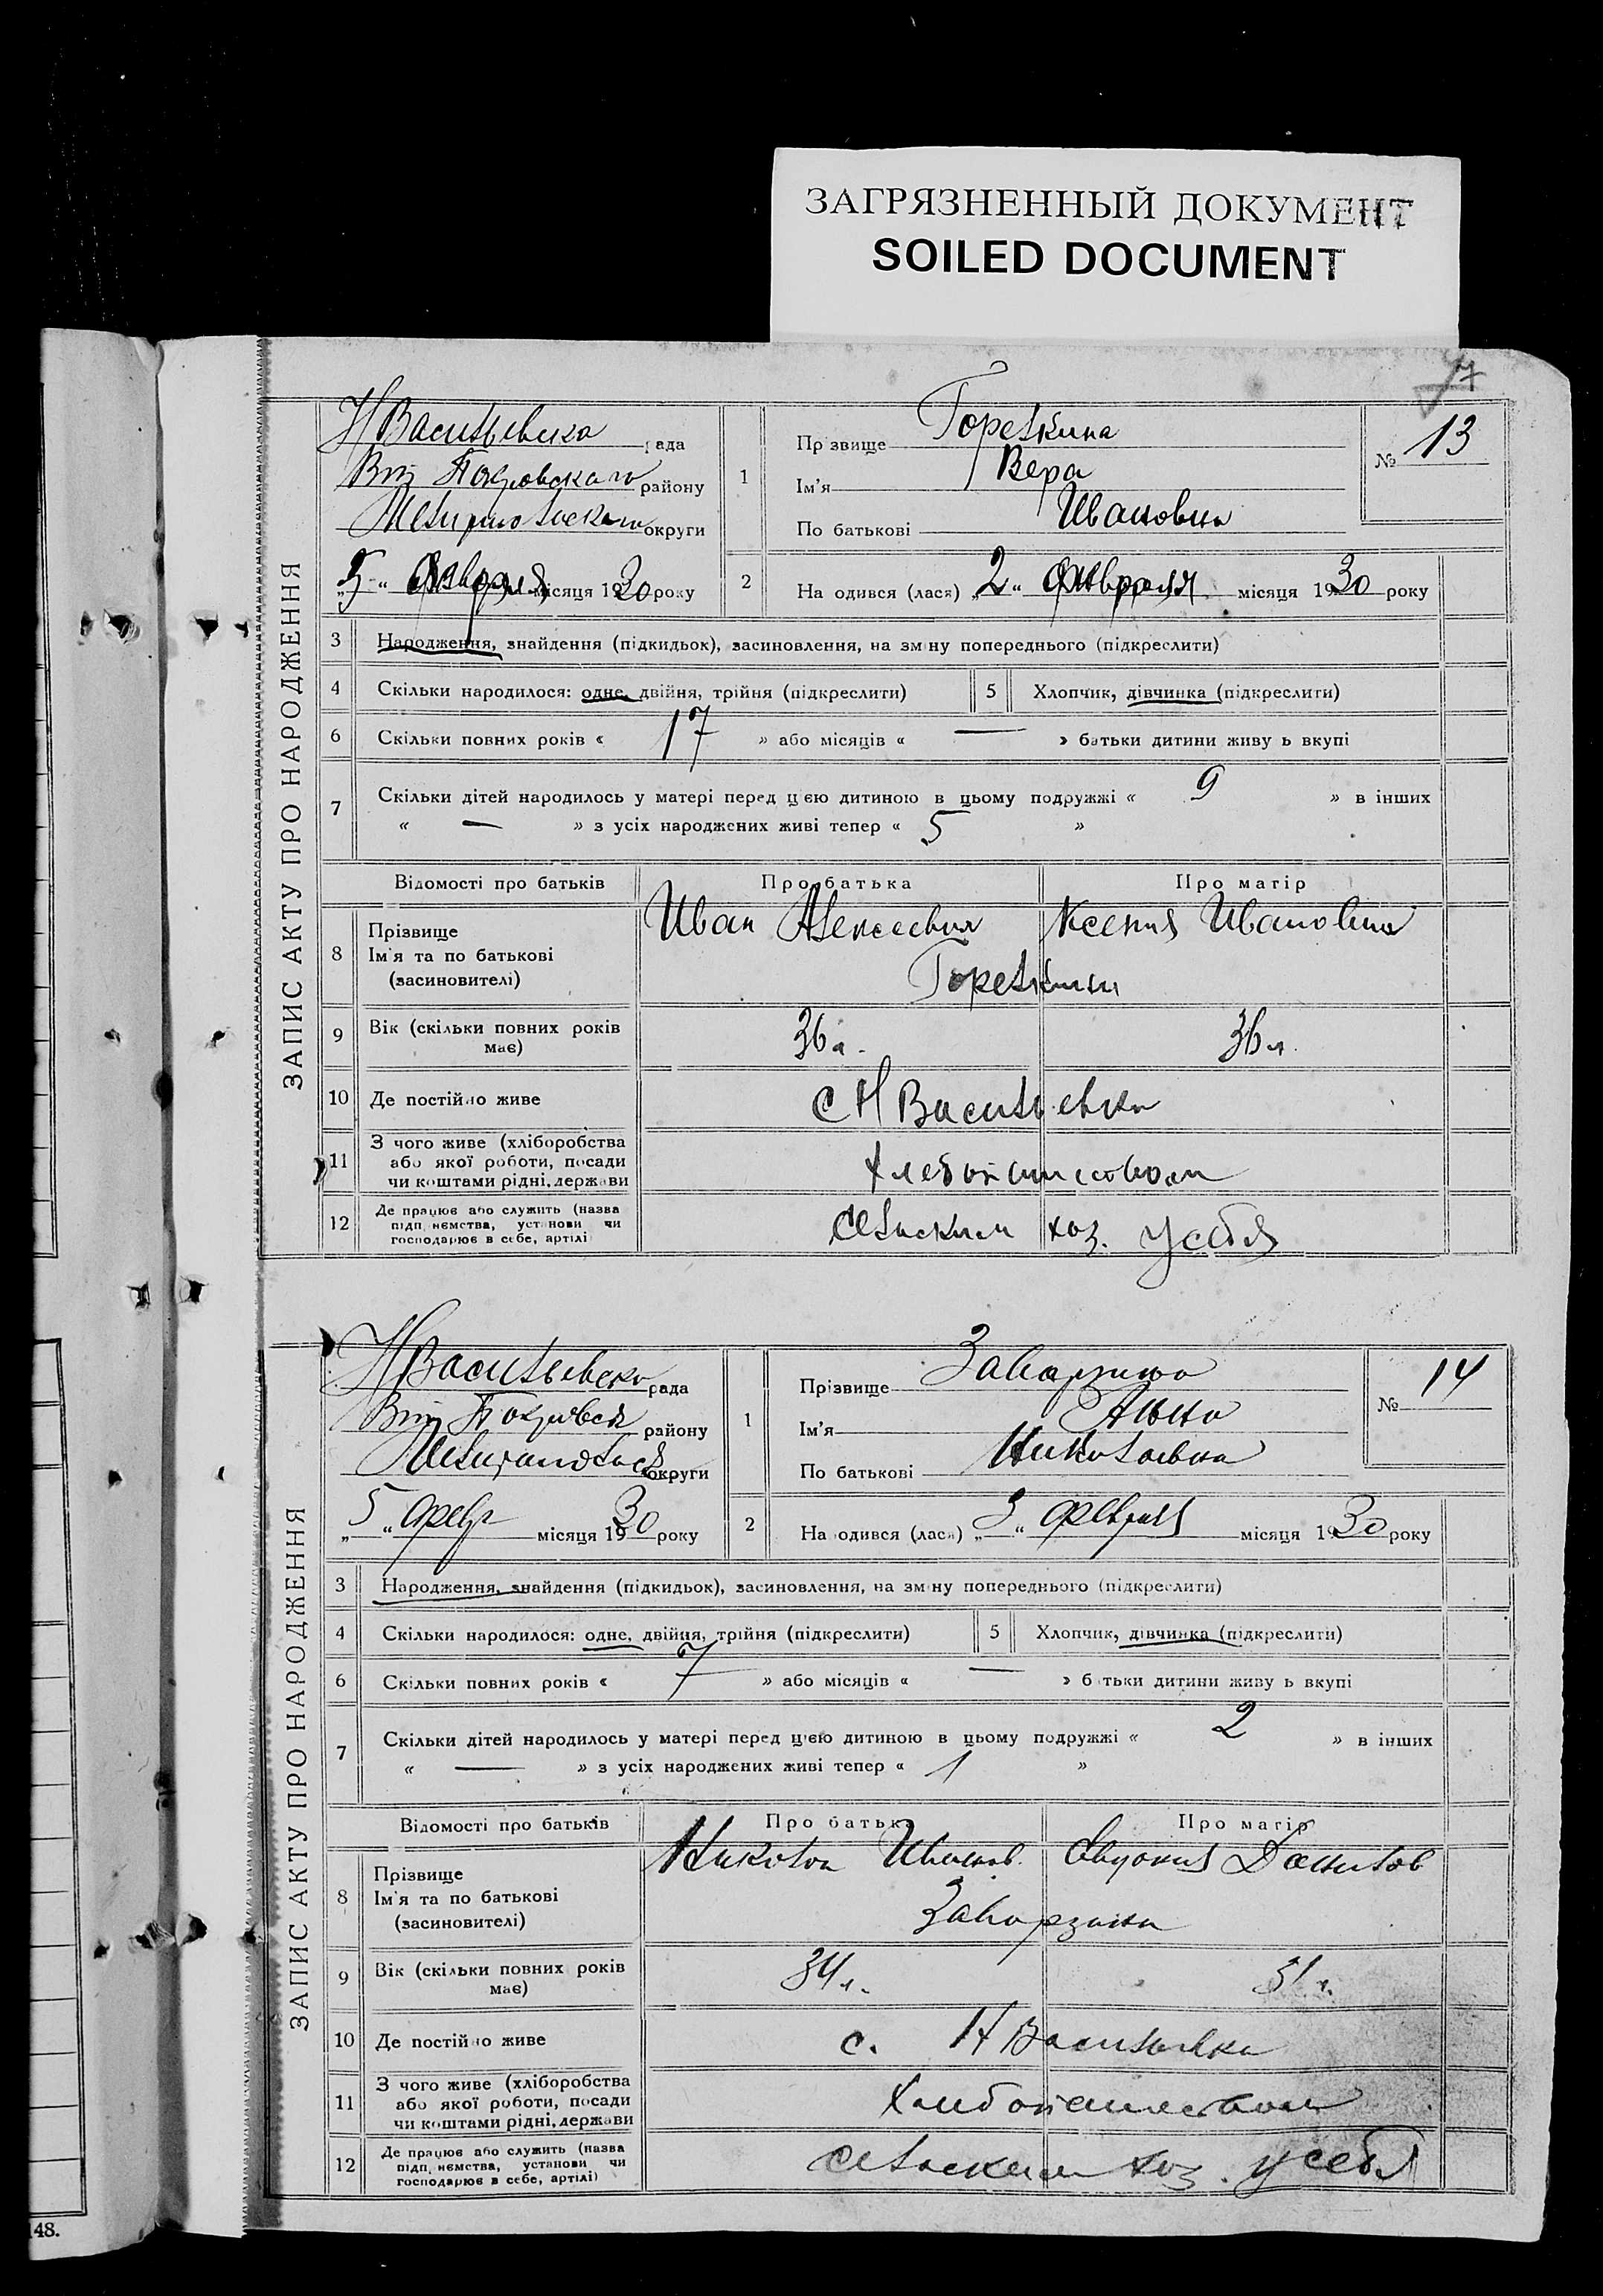 ЗАГРЯЗНЕННЫЙ ДОКУМЕНТ
SOILED DOCUMENT
7
ЗАПИС АКТУ ПРО НАРОДЖЕННЯ
НВасильевска рада
Вт Покровского району
Мелитопольского округи
1
Прізвище Горелкина
Ім'я Вера
По батькові Ивановна
№ 13
„5“ февраля місяця 1930 року
2
На одився (лася) „2“ февраля місяця 1930 року
3 Народження, знайдення (підкидьок), засиновлення, на зміну попереднього (підкреслити)
4 Скільки народилося: одне, двійня, трійня (підкреслити) 5 Хлопчик, дівчинка (підкреслити)
6 Скільки повних років « 17 » або місяців « — » батьки дитини живу ь вкупі
7 Скільки дітей народилось у матері перед цією дитиною в цьому подружжі « 9 » в інших
« — » з усіх народжених живі тепер « 5 »
Відомості про батьків Про батька Про матір
8 Прізвище
Ім'я та по батькові
(засиновителі)
Иван Алексеевич Ксения Ивановна
Горелкины
9 Вік (скільки повних років
має)
36 л. 36 л.
10 Де постійно живе с НВасильевка
11 З чого живе (хліборобства
або якої роботи, посади
чи коштами рідні, держави
Хлебопашеством
12 Де працює або служить (назва
підп нємства, установи чи
господарює в себе, артілі)
Сельским хоз. у себя
ЗАПИС АКТУ ПРО НАРОДЖЕННЯ
НВасильевска рада
Вт Покровск району
Мелитопольск округи
1
Прізвище Заварзина
Ім'я Анна
По батькові Николаевна
№ 14
„5“ февр місяця 1930 року
2
На одився (лася) „3“ февраля місяця 1930 року
3 Народження, знайдення (підкидьок), засиновлення, на зміну попереднього (підкреслити)
4 Скільки народилося: одне, двійня, трійня (підкреслити) 5 Хлопчик, дівчинка (підкреслити)
6 Скільки повних років « 7 » або місяців « — » б тьки дитини живу ь вкупі
7 Скільки дітей народилось у матері перед цією дитиною в цьому подружжі « 2 » в інших
« — » з усіх народжених живі тепер « 1 »
Відомості про батьків Про батька Про матір
8 Прізвище
Ім'я та по батькові
(засиновителі)
Николай Иванов. Евдокия Данилов
Заварзины
9 Вік (скільки повних років
має)
34 л. 31 л.
10 Де постійно живе с. НВасильевка
11 З чого живе (хліборобства
або якої роботи, посади
чи коштами рідні, держави
Хлебопашеством
12 Де працює або служить (назва
підп нємства, установи чи
господарює в себе, артілі)
Сельским хоз. у себя
48.